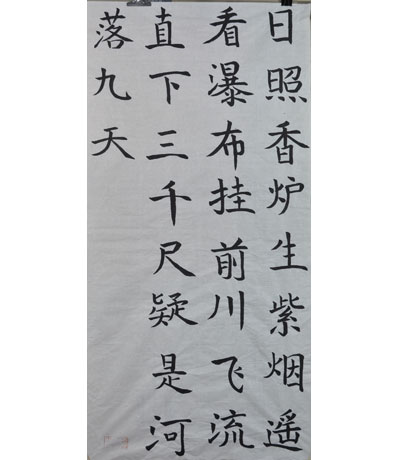 日照香炉生紫烟遥
看瀑布挂前川飞流
直下三千尺疑是河
落九天